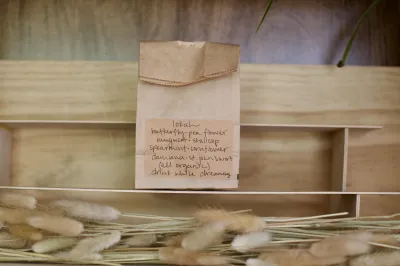 local~
butterfly-pea flower
mugwort-skullcap
spearmint-cornflower
damiana
(all organic)
drink while dreaming